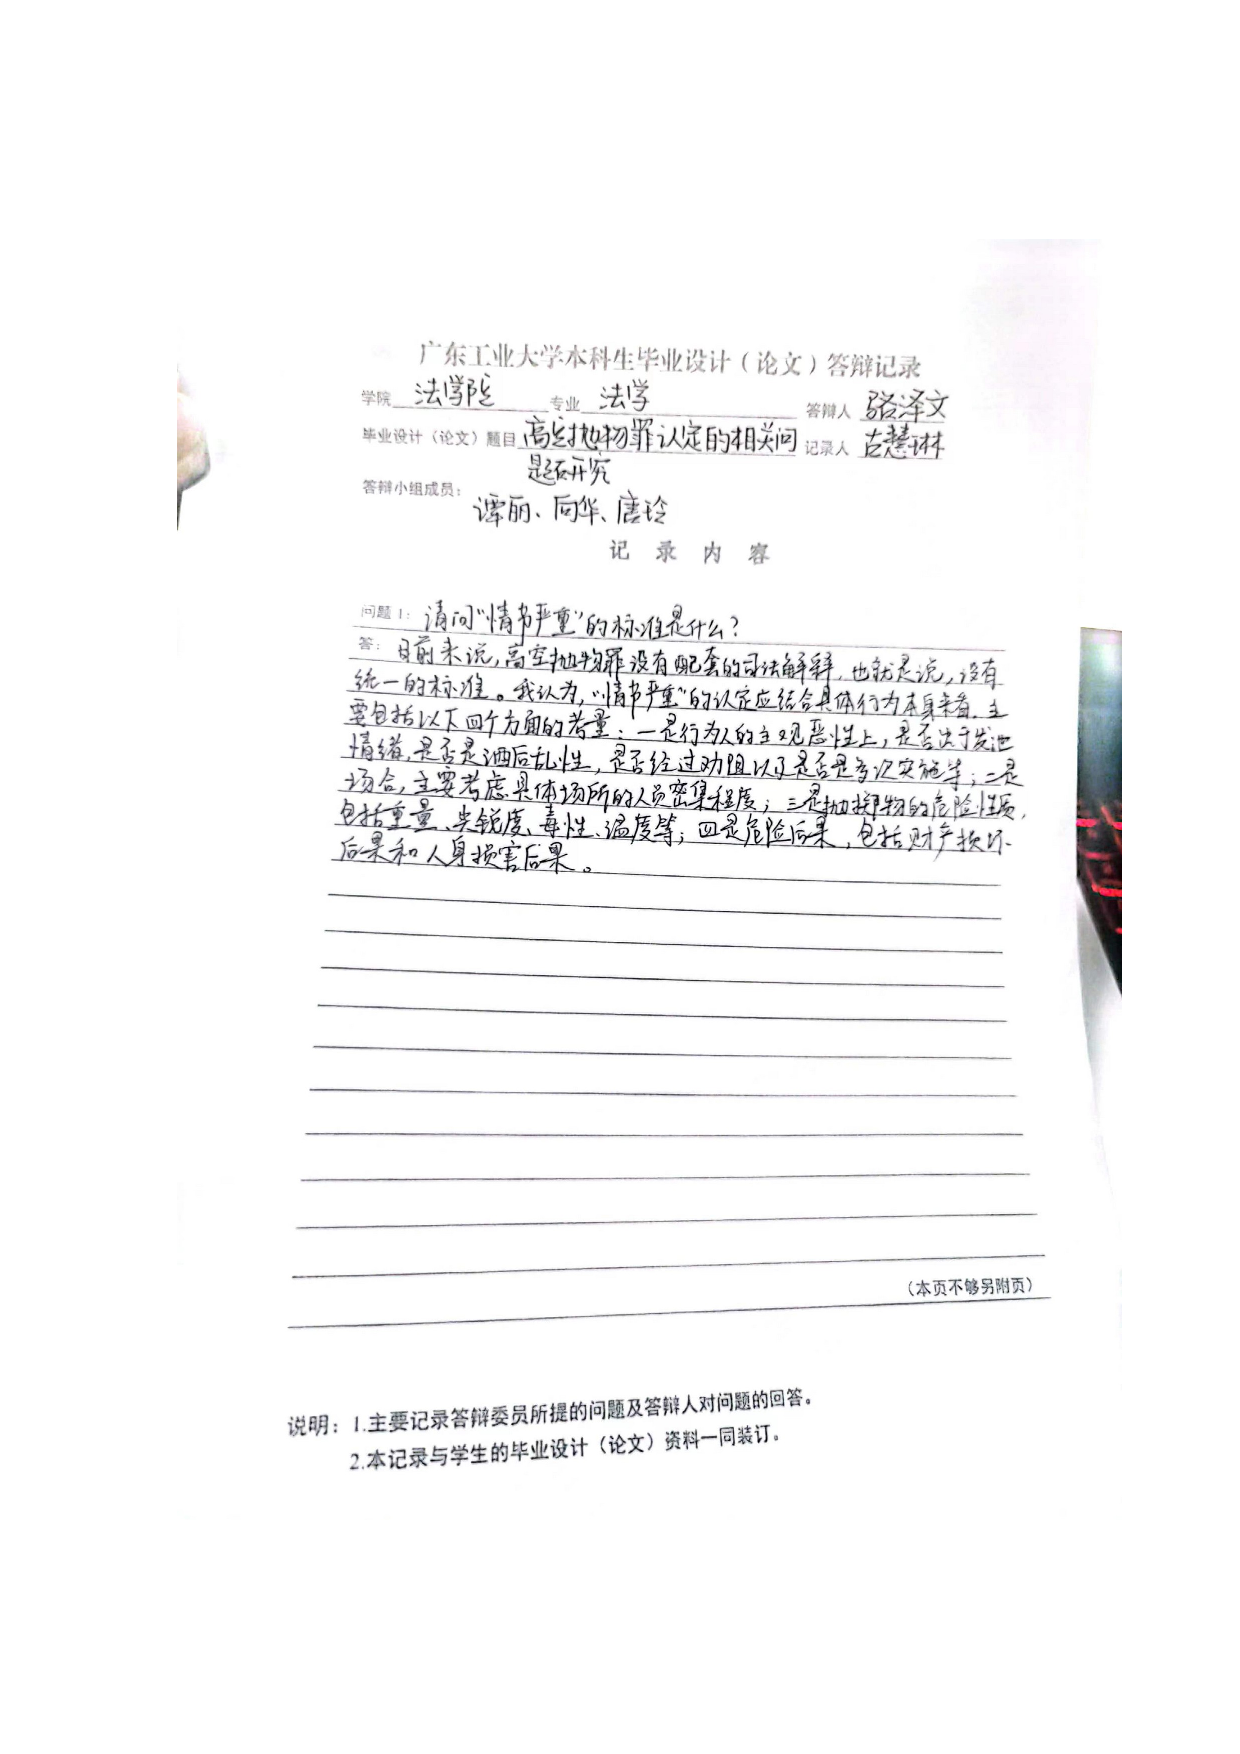 广东工业大学本科生毕业设计（论文）答辩记录
学院 法学院 专业 法学 答辩人 骆泽文
毕业设计（论文）题目 高空抛物罪认定的相关问 记录人 古慧琳
题研究
答辩小组成员：
谭丽、向华、唐玲
记 录 内 容
问题1： 请问“情节严重”的标准是什么？
答： 目前来说，高空抛物罪没有配套的司法解释，也就是说，没有
统一的标准。我认为，“情节严重”的认定应结合具体行为本身来看，主
要包括以下四个方面的考量：一是行为人的主观恶性上，是否出于发泄
情绪，是否是酒后乱性，是否经过劝阻以及是否是多次实施等；二是
场合，主要考虑具体场所的人员密集程度；三是抛掷物的危险性质，
包括重量、尖锐度、毒性、温度等；四是危险后果，包括财产损坏
后果和人身损害后果。
（本页不够另附页）
说明：1.主要记录答辩委员所提的问题及答辩人对问题的回答。
2.本记录与学生的毕业设计（论文）资料一同装订。